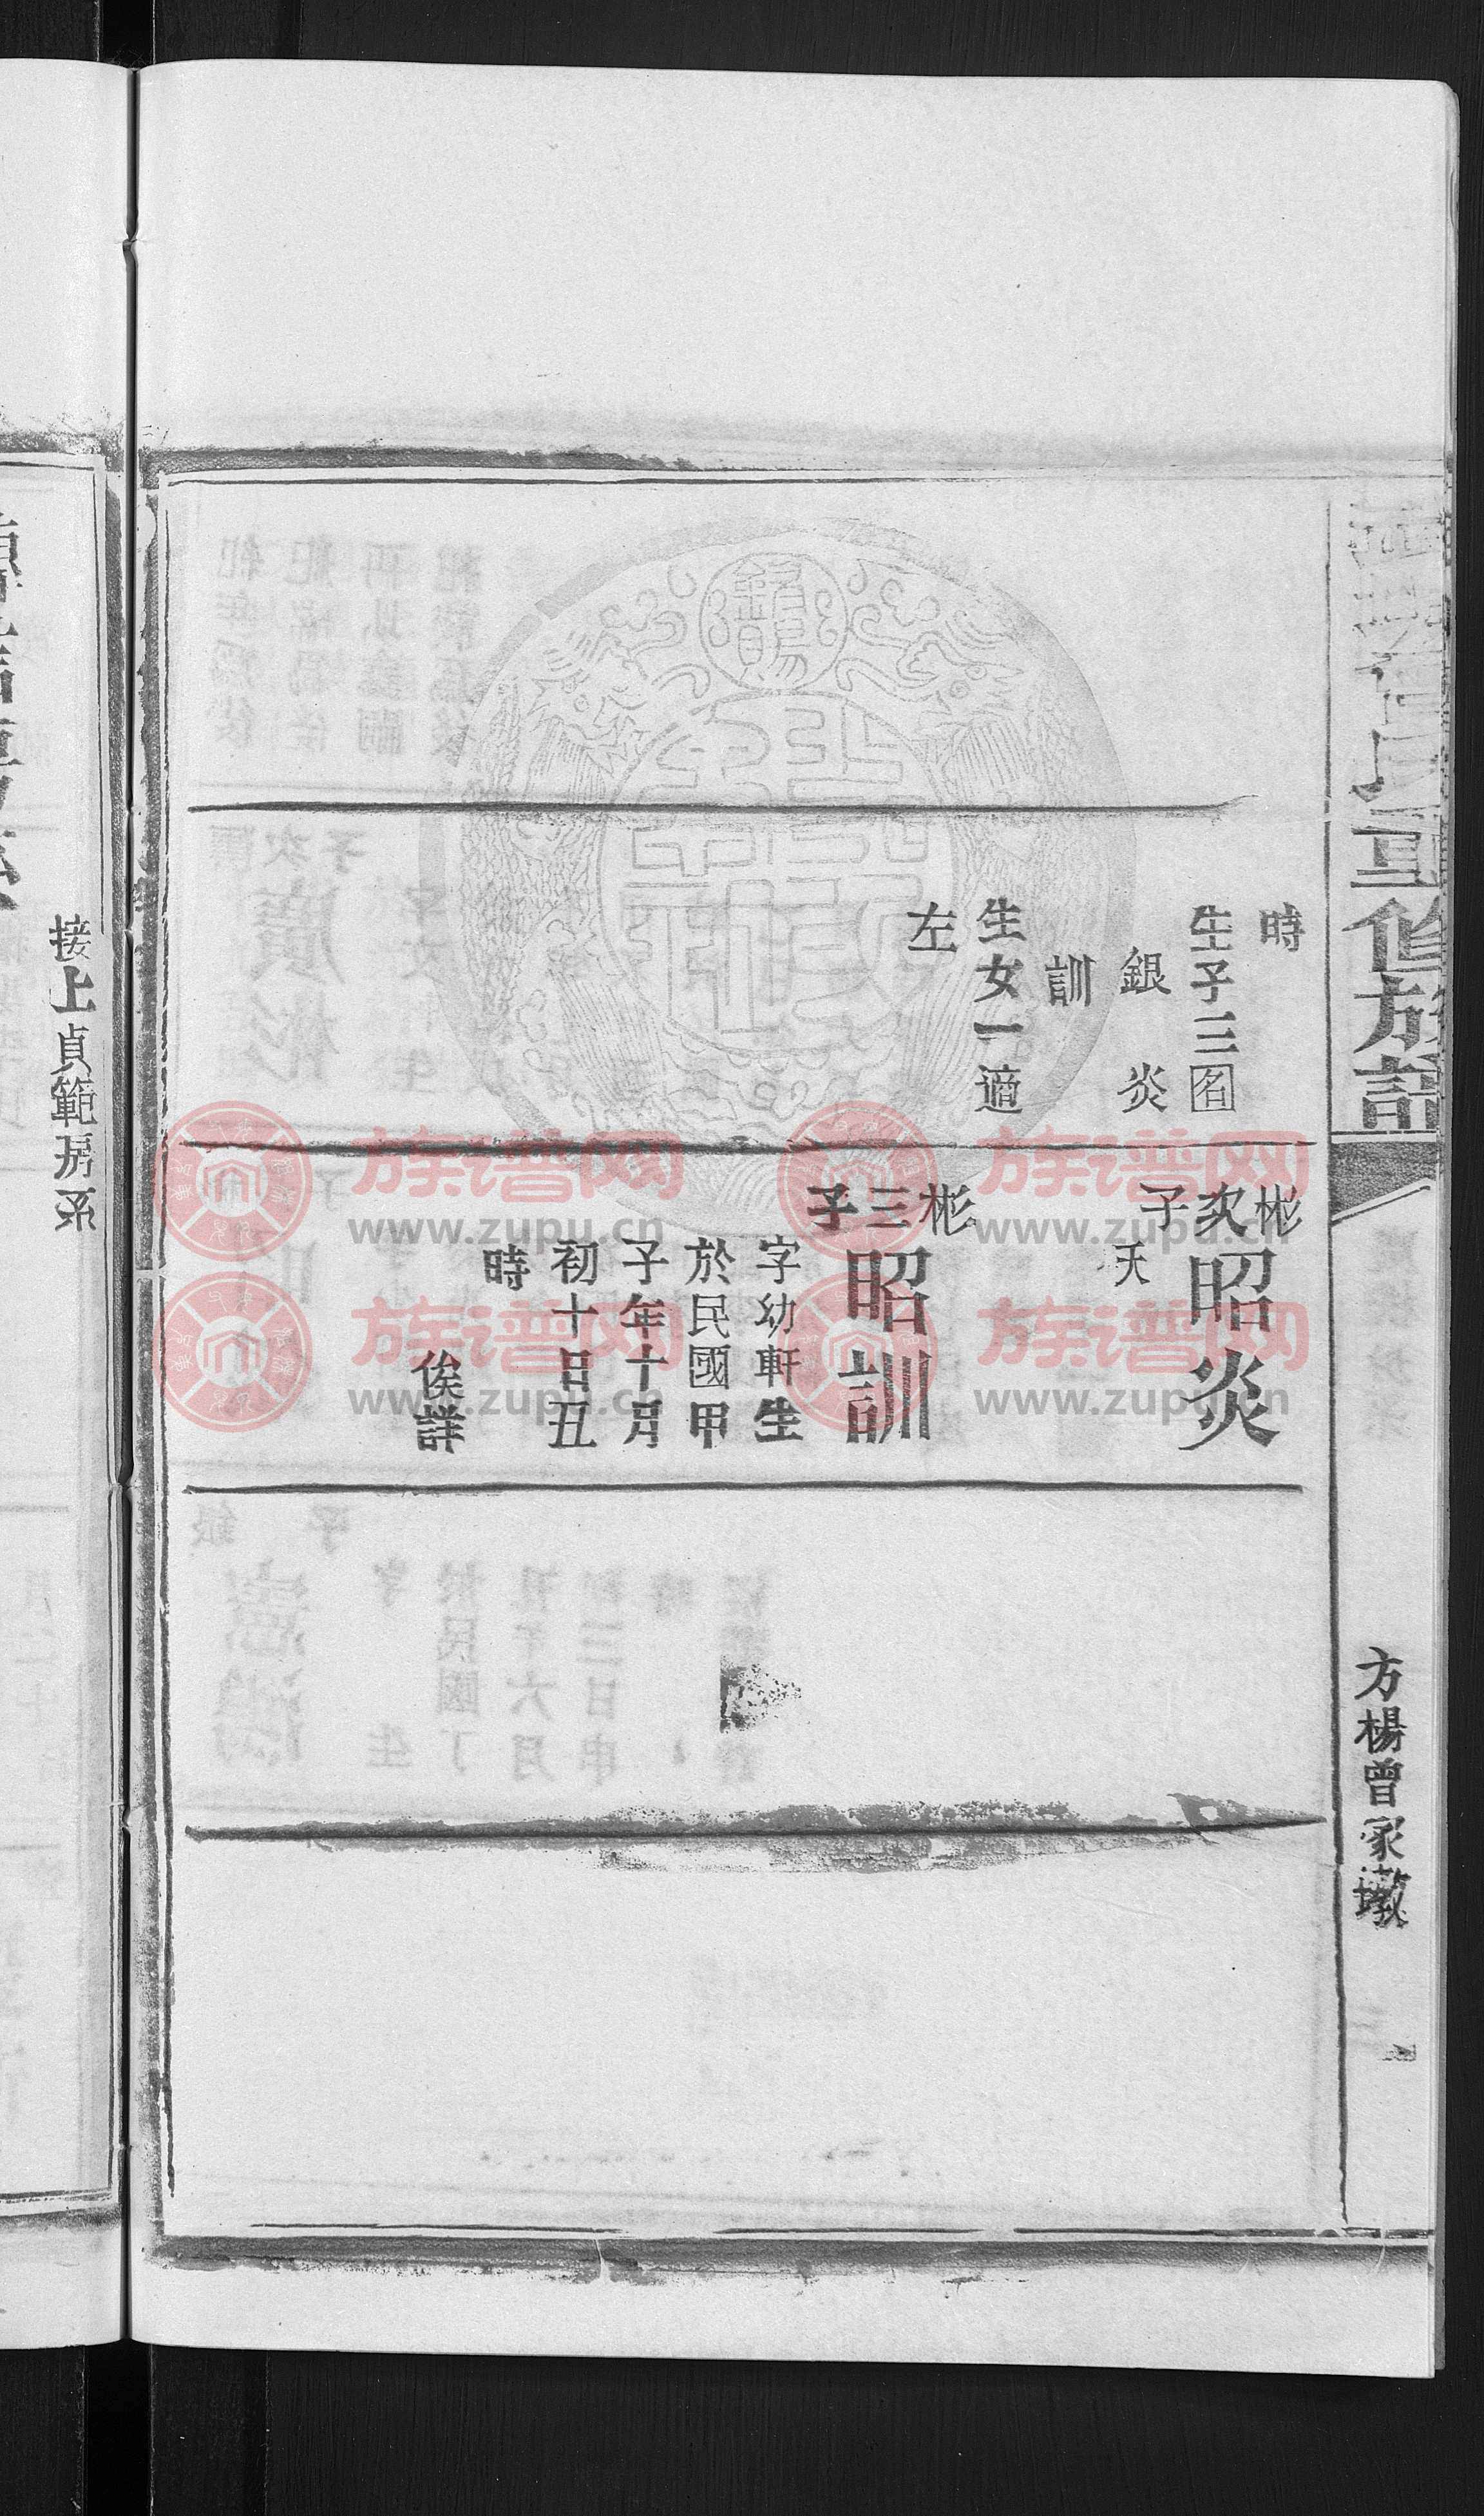 曾氏重修族譜
方楊曾家墩
時
生子三名
銀炎
訓
生女一適
左
彬次子
昭炎
夭
彬三子
昭訓
字幼軒生
於民國甲
子年十月
初十日丑
時
俟詳
接上貞範房系
族谱网
www.zupu.cn
族谱网
www.zupu.cn
族谱网
www.zupu.cn
族谱网
www.zupu.cn